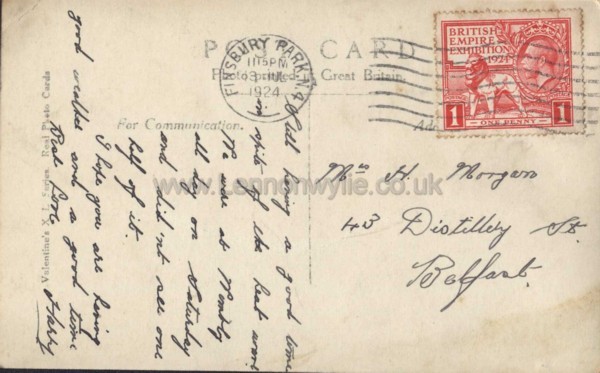 POST CARD
Photo printed in Great Britain.
FINSBURY PARK. N.4
11 15PM
1924
BRITISH
EMPIRE
EXHIBITION
1924
1
ONE PENNY
1
For Communication.
Valentine's X L Series. Real Photo Cards
Still having a good time
in spite of the heat wave
We were at Wembly
all day on Saturday
and did'nt see one
half of it.
I hope you are having
good weather and a good time
Best love
Harry
Mrs H. Morgan
43 Distillery St.
Belfast.
www.Lennonwylie.co.uk